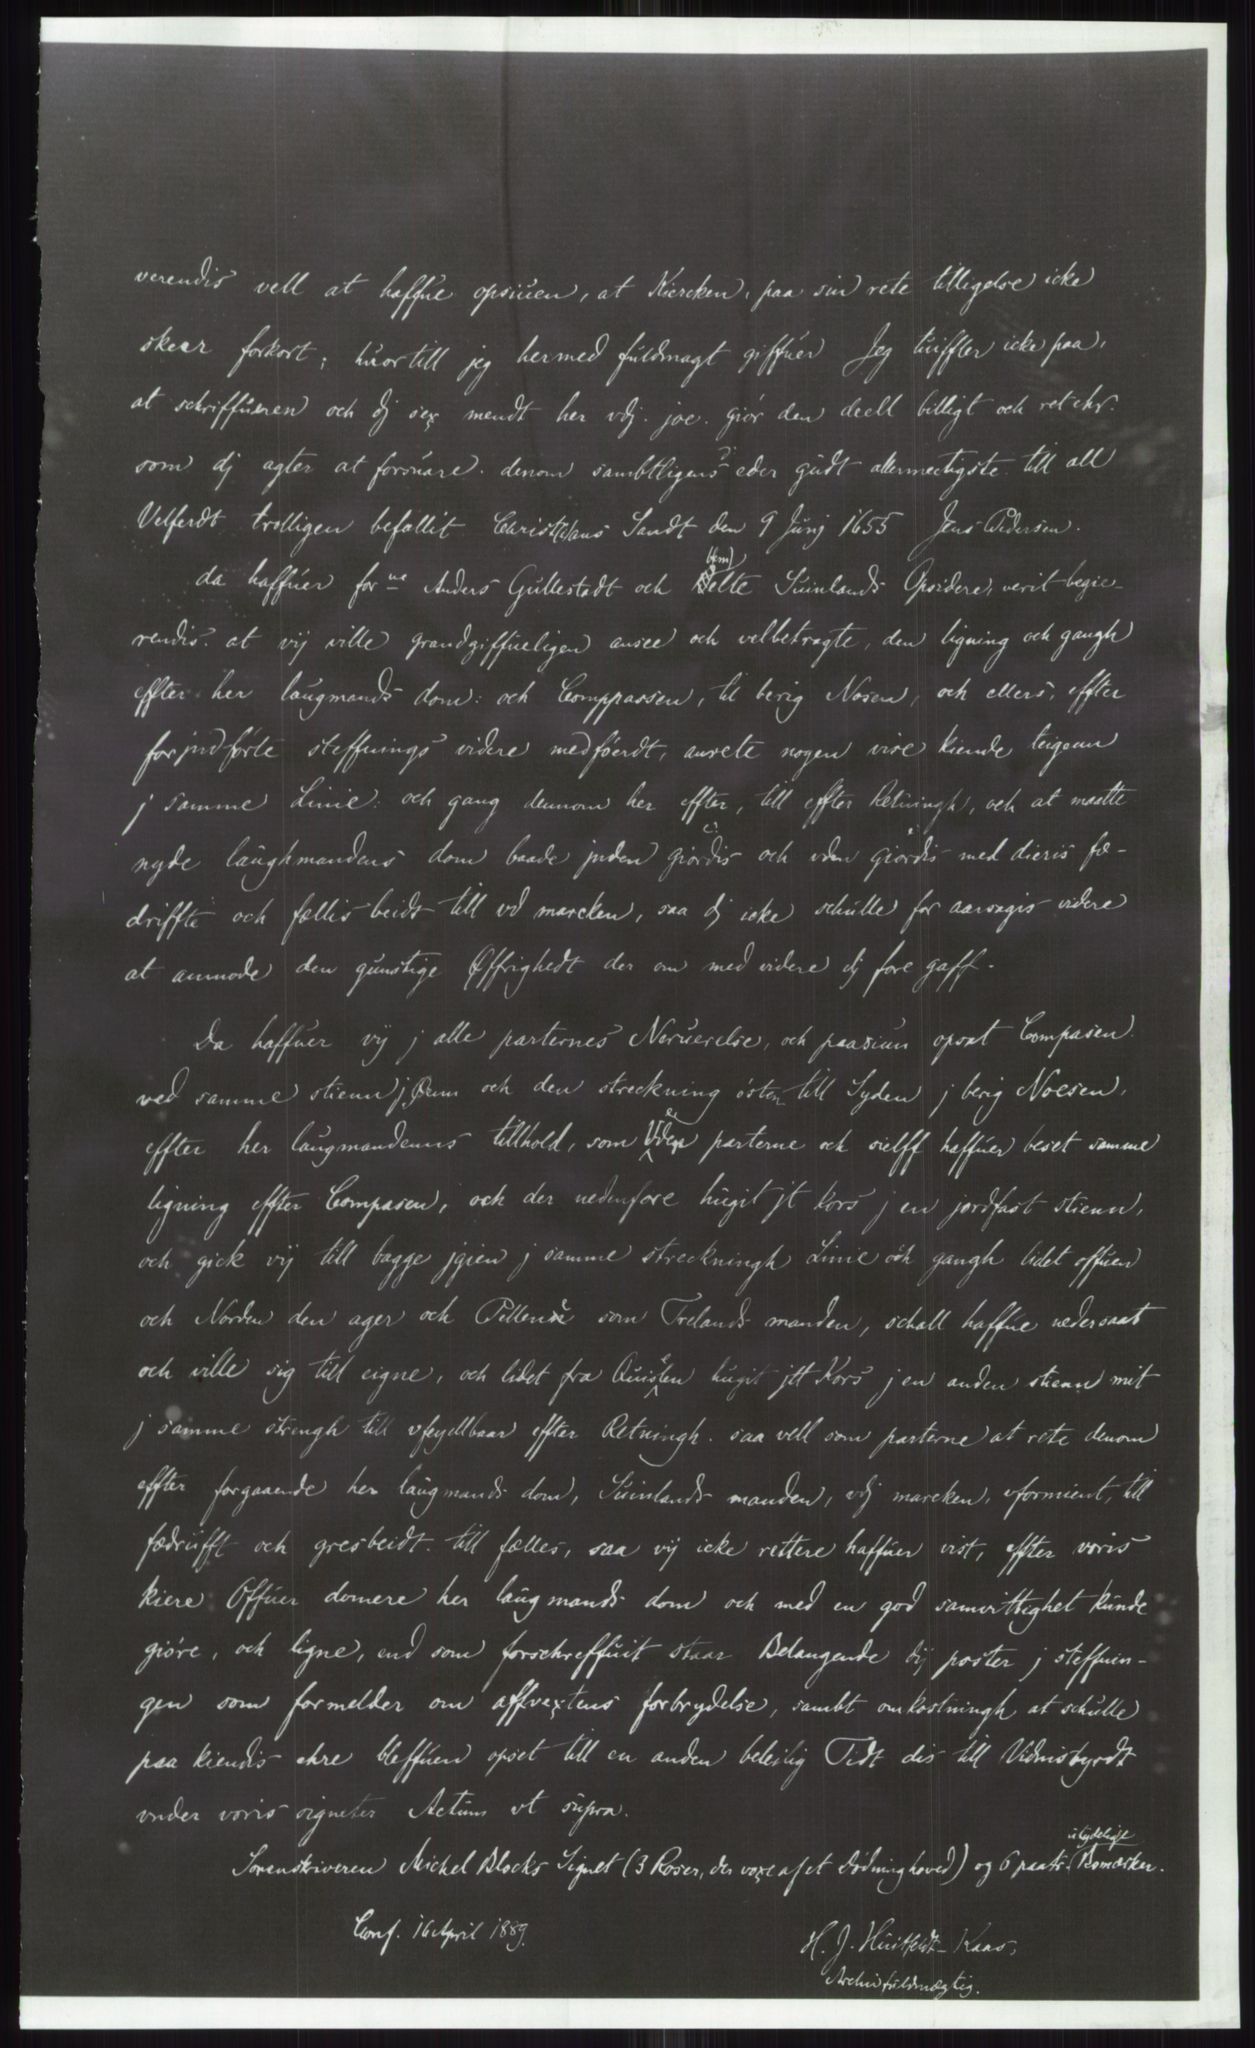 verendis vell at haffue opsiuen, at Kiercken, paa sin rete tilligelse icke
skeer forkort; huor till jeg hermed fuldmagt giffuer Jeg tuiffler icke paa,
at schriffueren och dj sex mendt her vdj. joe. giör den deell billigt och ret chr.
som dj agter at forsuare. denom sambtligens? eder gudt allermectigste till all
Velferdt trolligen befallit Christians Sandt den 9 Junj 1655 Jens Pedersen.
da haffuer for ne Anders Gullestadt och (bem) elte Suinlands Opsidere, verit begie-
rendis. at vij ville grandgiffueligen ansee och velbetragte, den ligning och gangh
effter her laugmands dom: och Comppassen, til berig Nosen, och ellers, effter
forindförte steffnings videre medföerdt, anrete nogen vise kiende teigenn
j samme Linie: och gang dennom her effter, till effter Retningh, och at maatte
nyde laughmandens dom baade jnden giördis och vden giördis med dieris fæ-
driffte och fællis beidt till vd marcken, saa dj icke schulle for aarsagis videre
at anmode den gunstige Øffrighedt der om med videre dj fore gaff.
Da haffuer vij j alle parternes Neruerelse, och paasiun opsat Compasen
ved samme stienn j Øenn och den streckning östen till Syden j berig Noesen,
effter her laugmandenns tillhold, som parterne och sielff haffuer beset samme
ligning effter Compasen, och der nedenfore hugit jt kors j en jordfast stienn,
och gick vij till bagge jgien j samme streckningh Linie och gangh lidet offuen
och Norden den ager och som Frelands manden, schall haffue nedersaat
och ville sig till eigne, och lidet fra Quisten hugit jtt Kors j en anden stienn mit
j samme strengh till vfeyllbaar effter Retningh. saa vell som parterne at rete denom
effter forgaaende her laugmands dom, Suinlands manden, vdj marcken, vformient, till
fædrifft och gresbeidt till fælles, saa vij icke rettere haffuer vist, effter voris
kiere Offuer domere her laugmands dom och med en god samvittighet kunde
giöre, och ligne, end som forschreffuit staar Belangende dij poster j steffnin-
gen som formelder om affvextens forbrydelse, sambt omkostningh at schulle
paa kiendis ehre bleffuen opset till en anden beleilig Tidt dis till Vidnisbyrdt
vnder voris signeter Actum vt supra.
Sorenskriveren Michel Blocks Signet (3 Roser, der voxe af et Dødninghoved) og 6 paatr. utydelige Bomærker.
Conf. 16 April 1889.
H. J. Huitfeldt-Kaas,
Archivfuldmægtig.